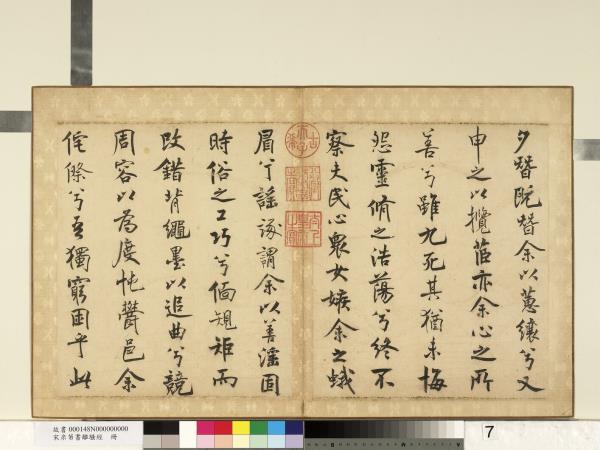 夕替既替余以蕙纕兮又
申之以攬茝亦余心之所
善兮雖九死其猶未悔
怨靈脩之浩蕩兮終不
察夫民心衆女嫉余之蛾
古希天子
八徵耄念之寶
太上皇帝之寶
眉兮謠諑謂余以善淫固
時俗之工巧兮偭規矩而
改錯背繩墨以追曲兮競
周容以為度忳鬱邑余
侘傺兮吾獨窮困乎此
故書 000148N000000000
宋米芾書離騷經 冊
7